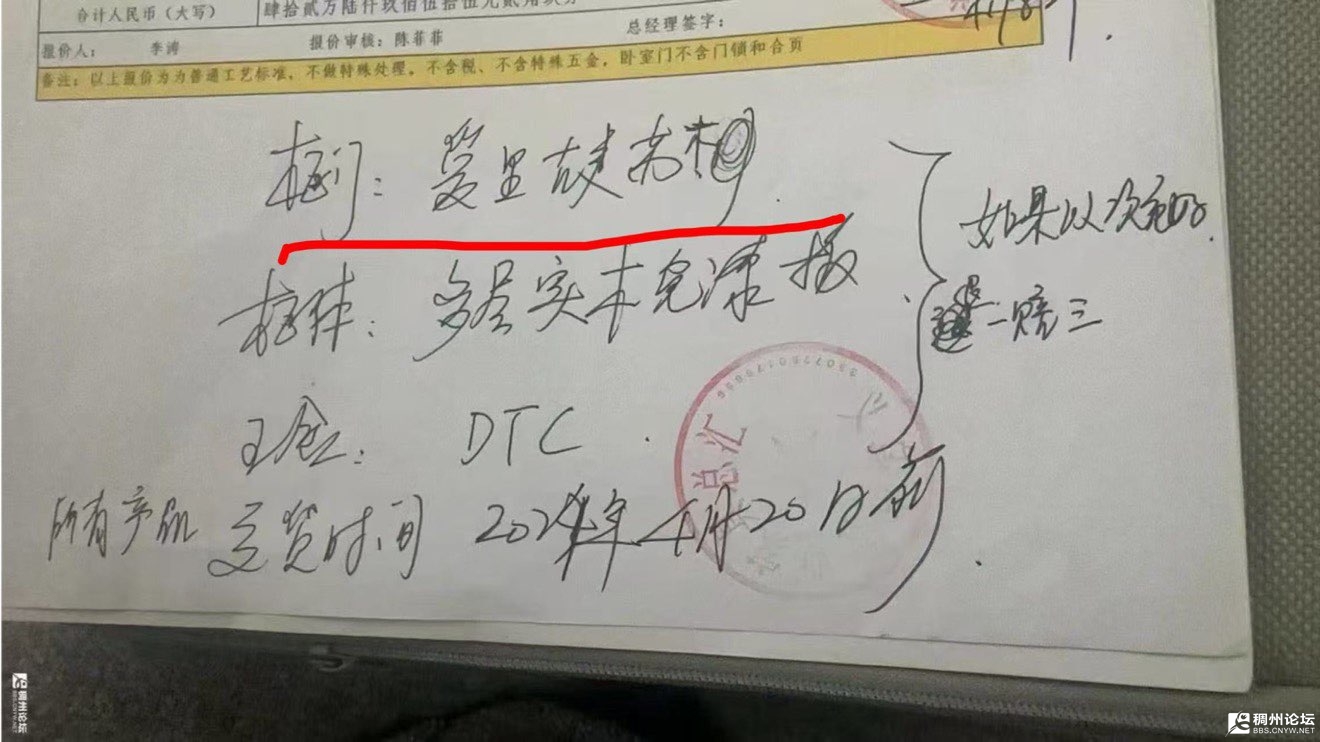 合计人民币（大写） 肆拾贰万陆仟玖佰伍拾伍元贰角
报价人： 李涛 报价审核：陈菲菲 总经理签字：
备注：以上报价为为普通工艺标准，不做特殊处理，不含税、不含特殊五金，卧室门不含门锁和合页
柜门：爱里古夷苏木
柜体：多层实木免漆板
如果以次充好
退一赔三
五金：DTC
所有产品交货时间 2024年4月20日前
总汇
稠州论坛
BBS.CNYW.NET